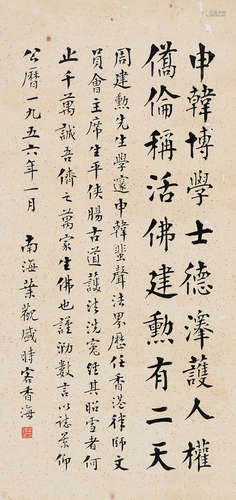 申韓博學士德澤護人權
僑倫稱活佛建勲有二天
周建勲先生學邃申韓蜚聲法界歷任香港律師文
員會主席生平俠腸古道護法洗冤經其昭雪者何
止千萬誠吾儕之萬家生佛也謹泐數言以誌景仰
公曆一九五六年一月 南海葉觀盛時客香海